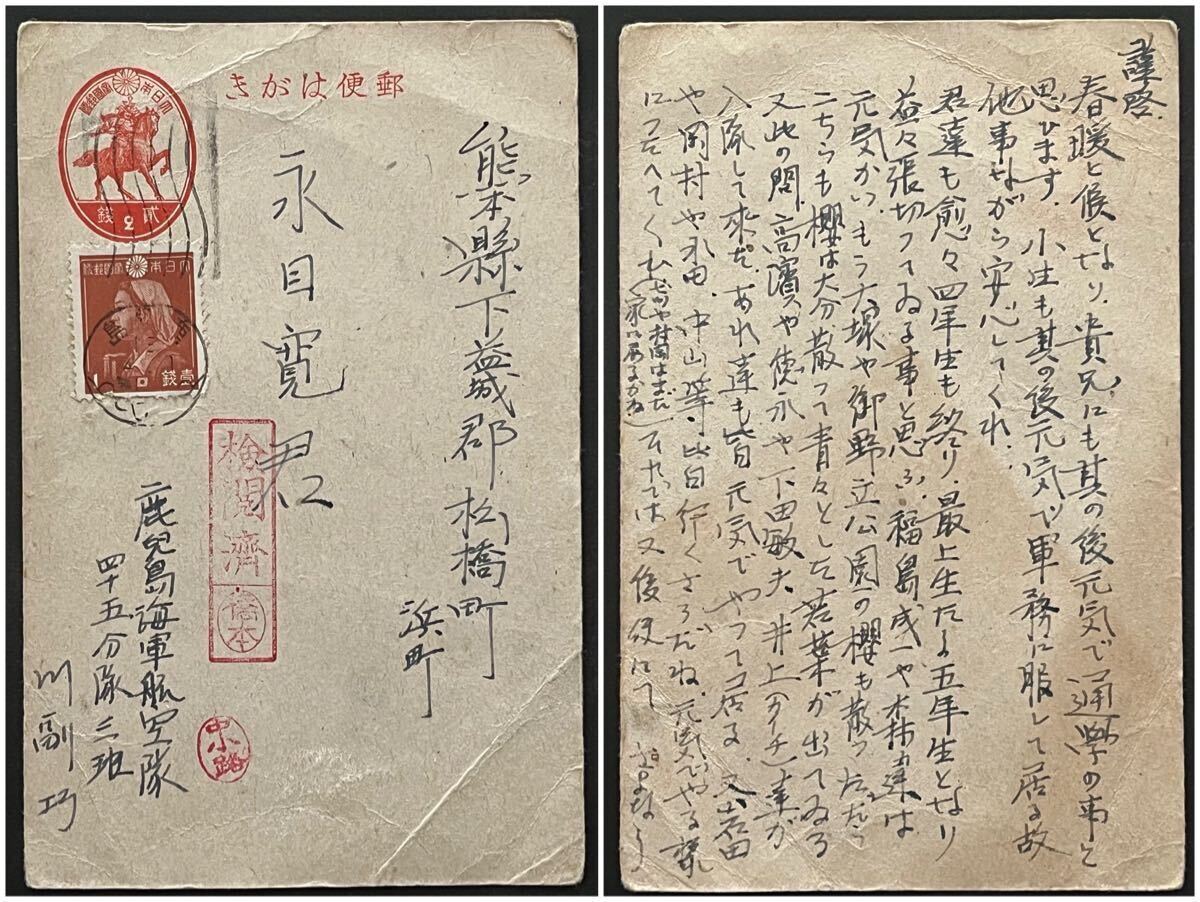 郵便はがき
大日本帝國郵便
貳 2 錢
大日本帝國郵便
壹 1 錢
熊本縣下益城郡松橋町
浜町
永目寛君
検閲済
橋本
鹿児島海軍航空隊
四十五分隊三班
川副巧
謹啓.
春暖と候となり、貴兄にも其の後元気で通學の事と
思ひます. 小生も其の後元気で軍務に服して居る故
他事ながら安心してくれ.
君達も愈々四年生も終り、最上生たる五年生となり
益々張切ってゐる事と思ふ、福島成一や森達は
元気かい. もう大塚や御野立公園の櫻も散っただらう
こちらも櫻は大分散って青々とした若葉が出てゐる
又此の間、高濱や徳永や下田敏夫、井上 達が
入隊して来た. あれ達も皆元気でやって居る. 又岩田
や岡村や永田、中山等、皆行くさうだね. 元気でやる様
につたへてくれ
それでは又後便にて
さよなら